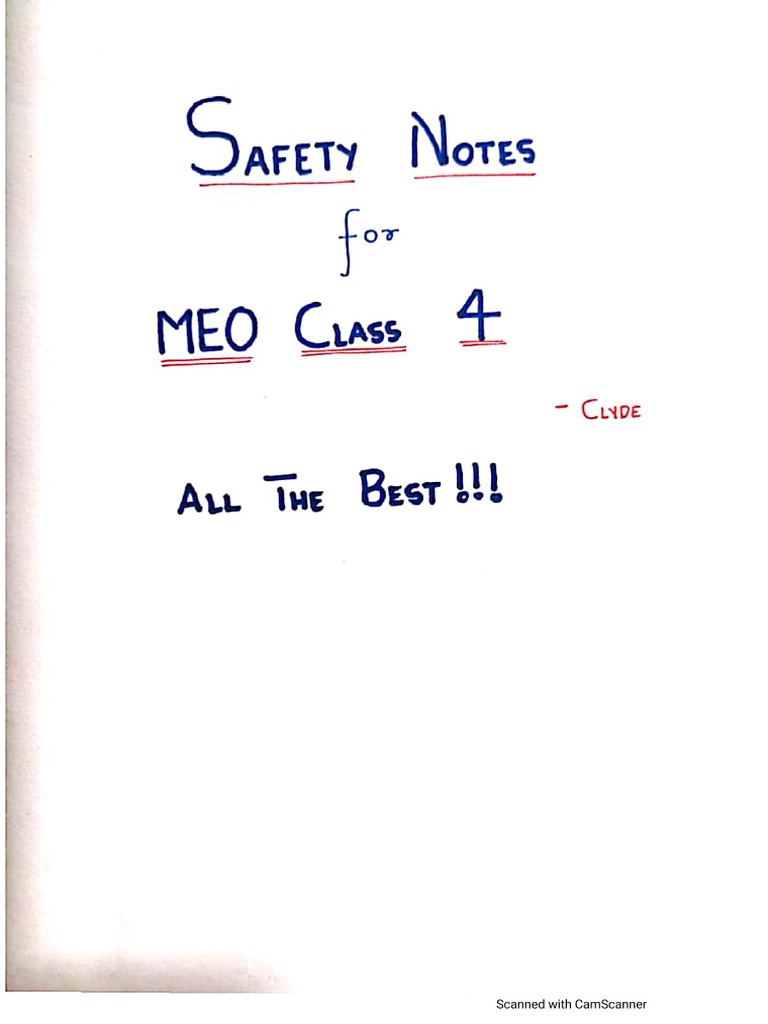 SAFETY NOTES
for
MEO CLASS 4
- CLYDE
ALL THE BEST!!!
Scanned with CamScanner